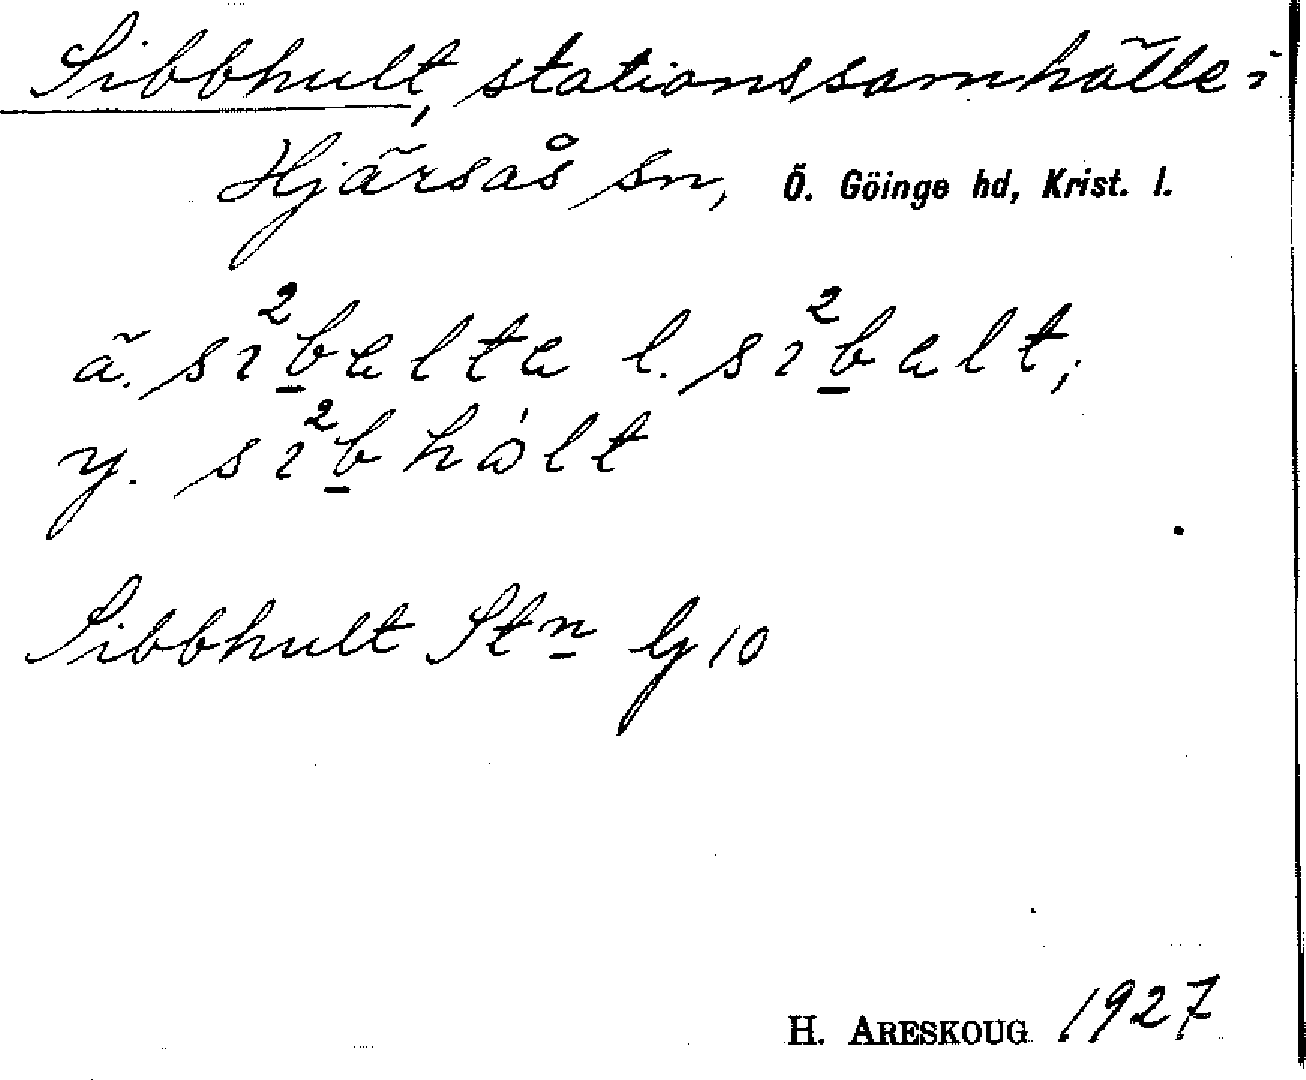 Sibbhult, stationssamhälle i
Hjärsås sn, Ö. Göinge hd, Krist. l.
ä. sı²b̲alta l. sı²b̲alt,
y. sı²b̲hålt
Sibbhult Stn lg 10
H. ARESKOUG 1927